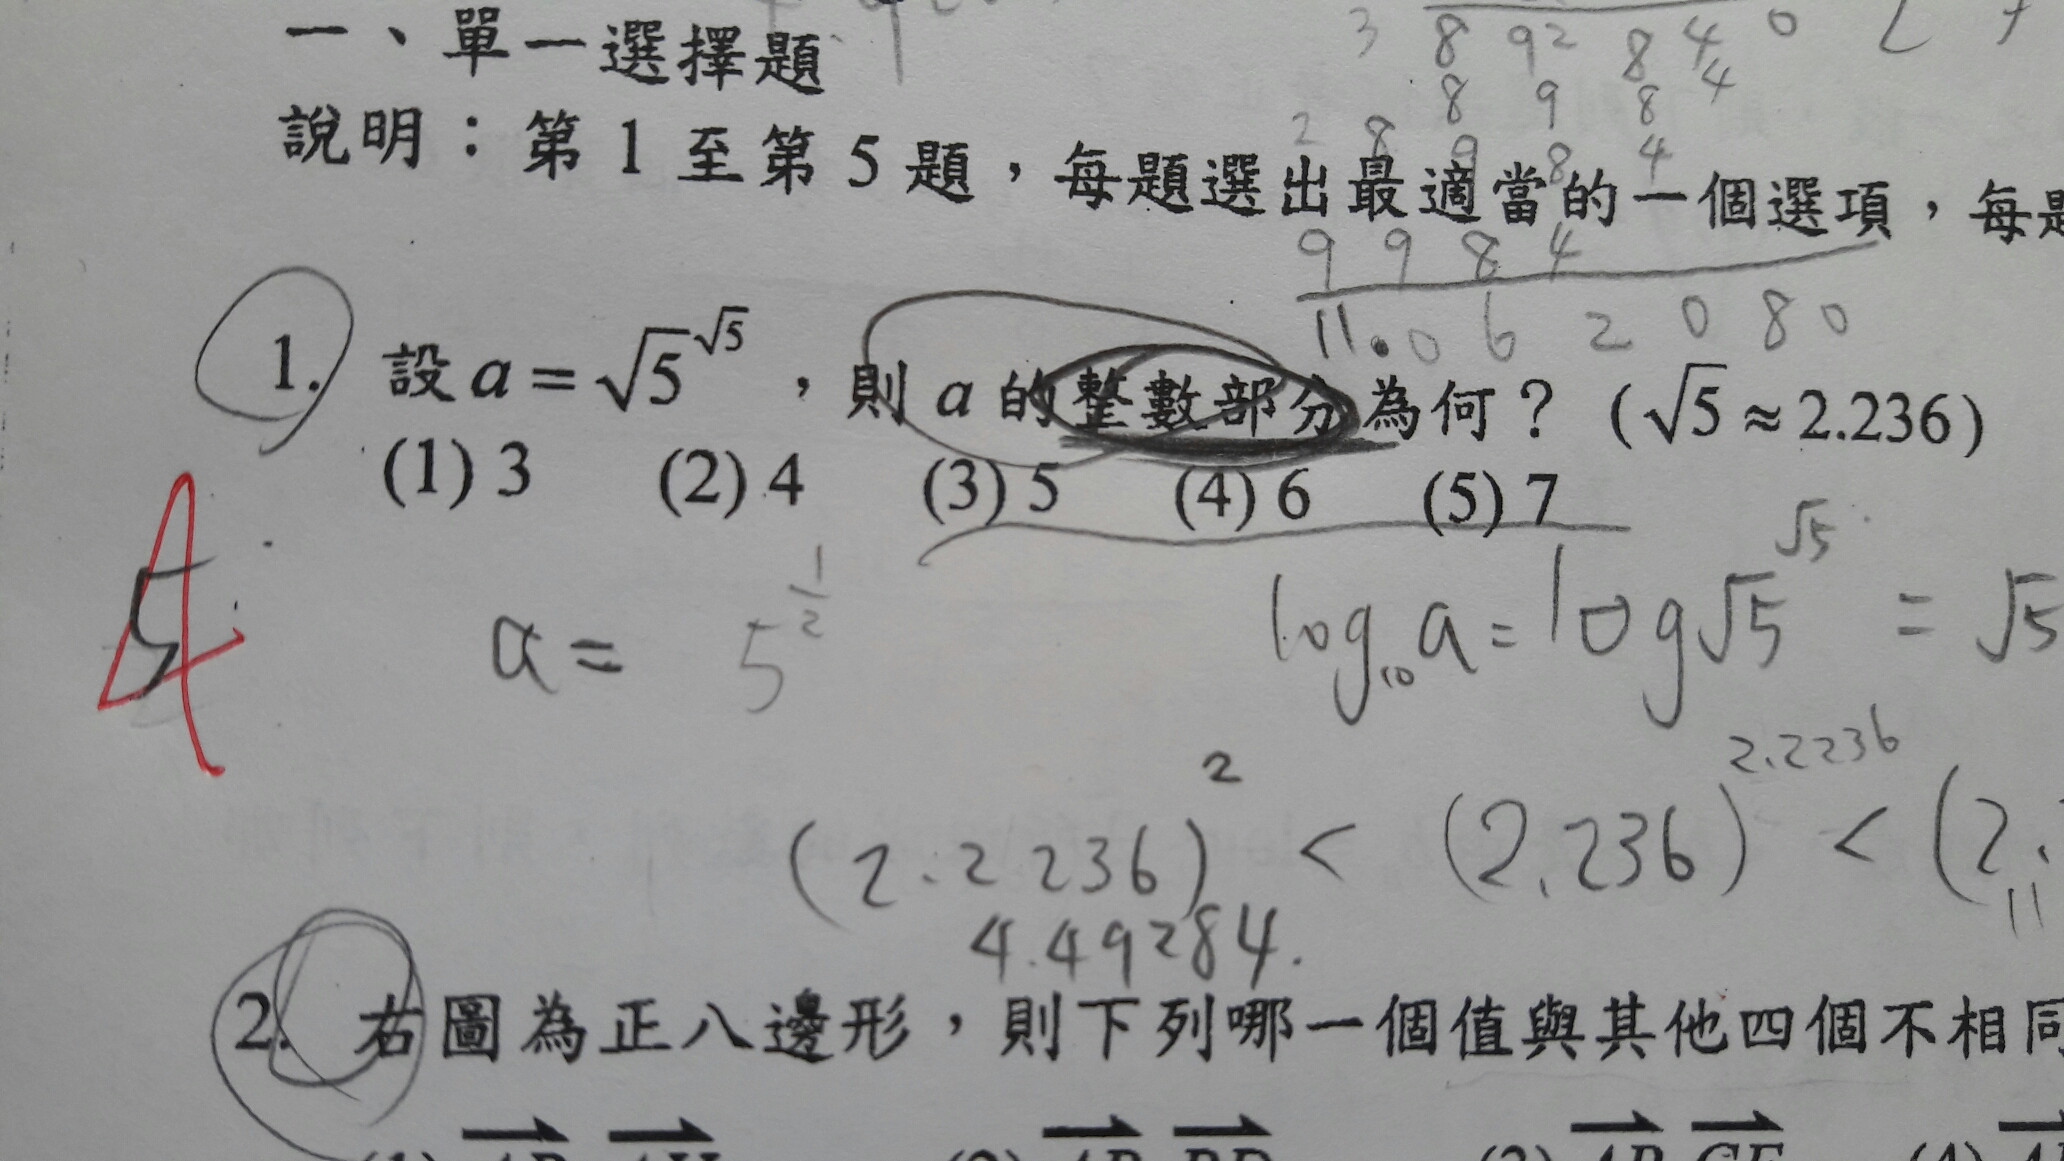 一、單一選擇題
3 8 9 2 8 4 0
8 9 8 4
說明：第 1 至第 5 題，每題選出最適當的一個選項，每題
2 8 9 8 4
9 9 8 4
11.0 6 2 0 8 0
1. 設 a = √5^√5 ，則 a 的整數部分為何？ (√5 ≈ 2.236)
(1) 3 (2) 4 (3) 5 (4) 6 (5) 7
4
5
a = 5^(1/2) log₁₀ a = log √5^√5 = √5
(2.2236)^2 < (2.236)^2.2236 < (2.
4.49284. 11
2. 右圖為正八邊形，則下列哪一個值與其他四個不相同